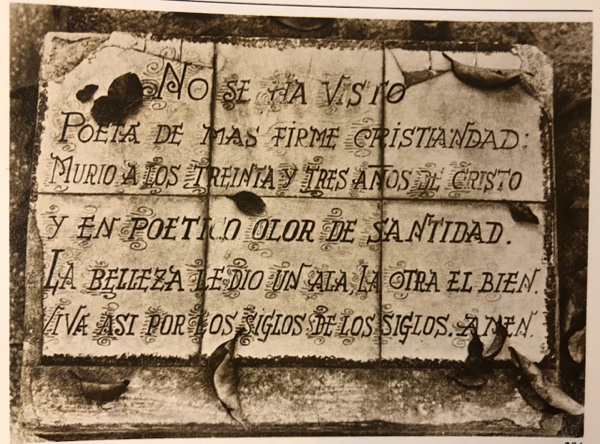 No SE HA VISTO
POETA DE MAS FIRME CRISTIANDAD:
MURIO A LOS TREINTA Y TRES AÑOS DE CRISTO
Y EN POETICO OLOR DE SANTIDAD.
LA BELLEZA LE DIO UN ALA, LA OTRA EL BIEN.
VIVA ASI POR LOS SIGLOS DE LOS SIGLOS. AMEN.